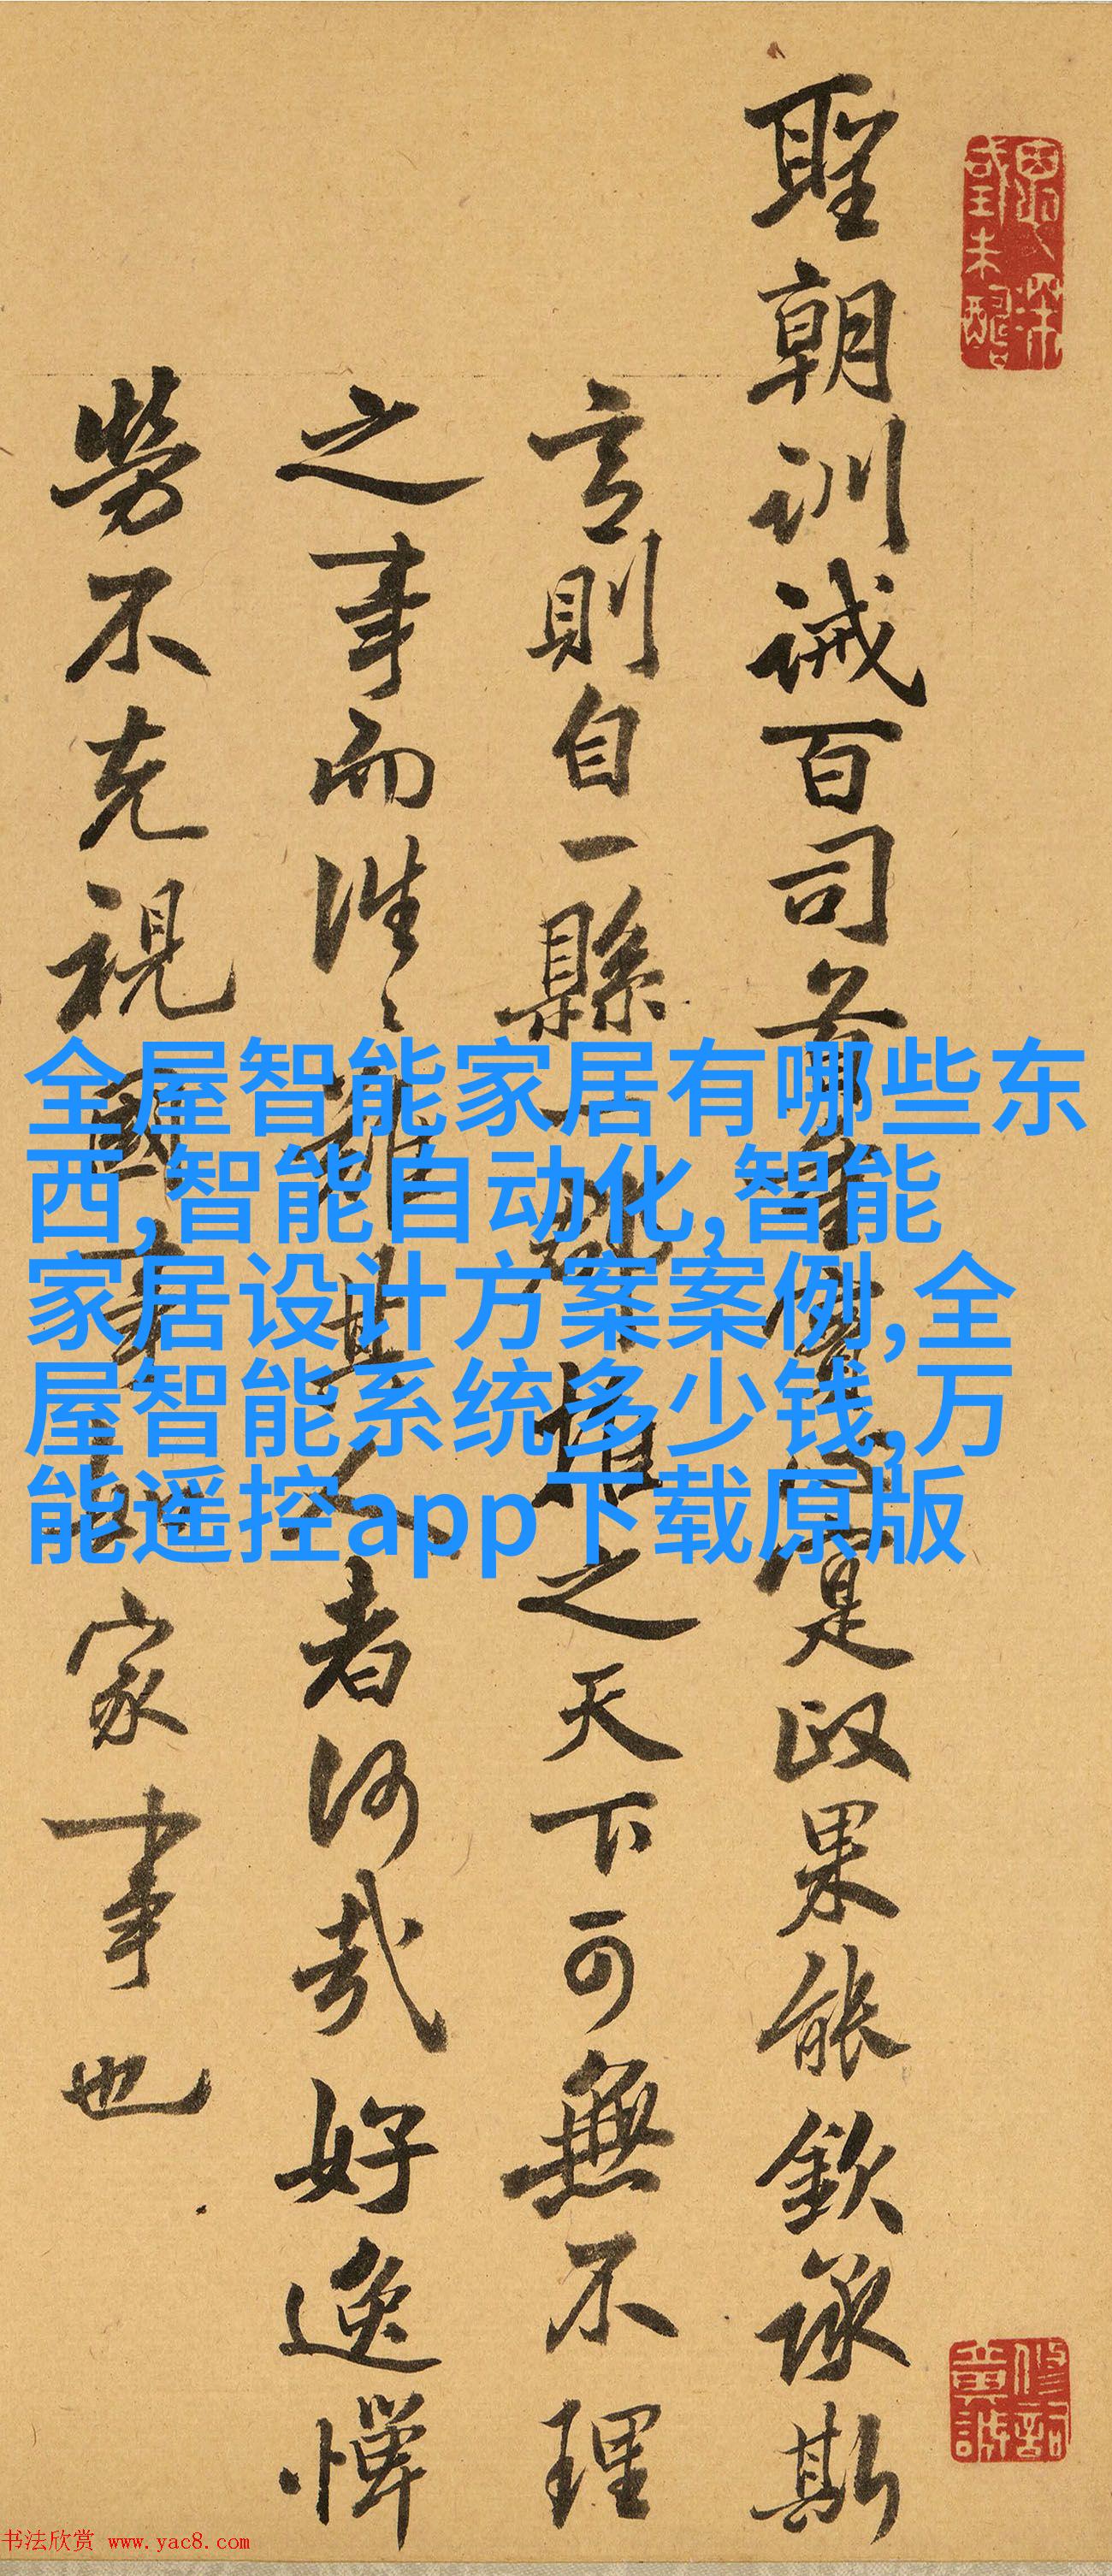 聖朝訓誡百司首重實心實政果能欽承斯
言則自一縣一郡推之天下可無不理
之事而往々難其人者何哉好逸憚
勞不克視國事如家事也
全屋智能家居有哪些东
西,智能自动化,智能
家居设计方案案例,全
屋智能系统多少钱,万
能遥控app下载原版
书法欣赏 www.yac8.com